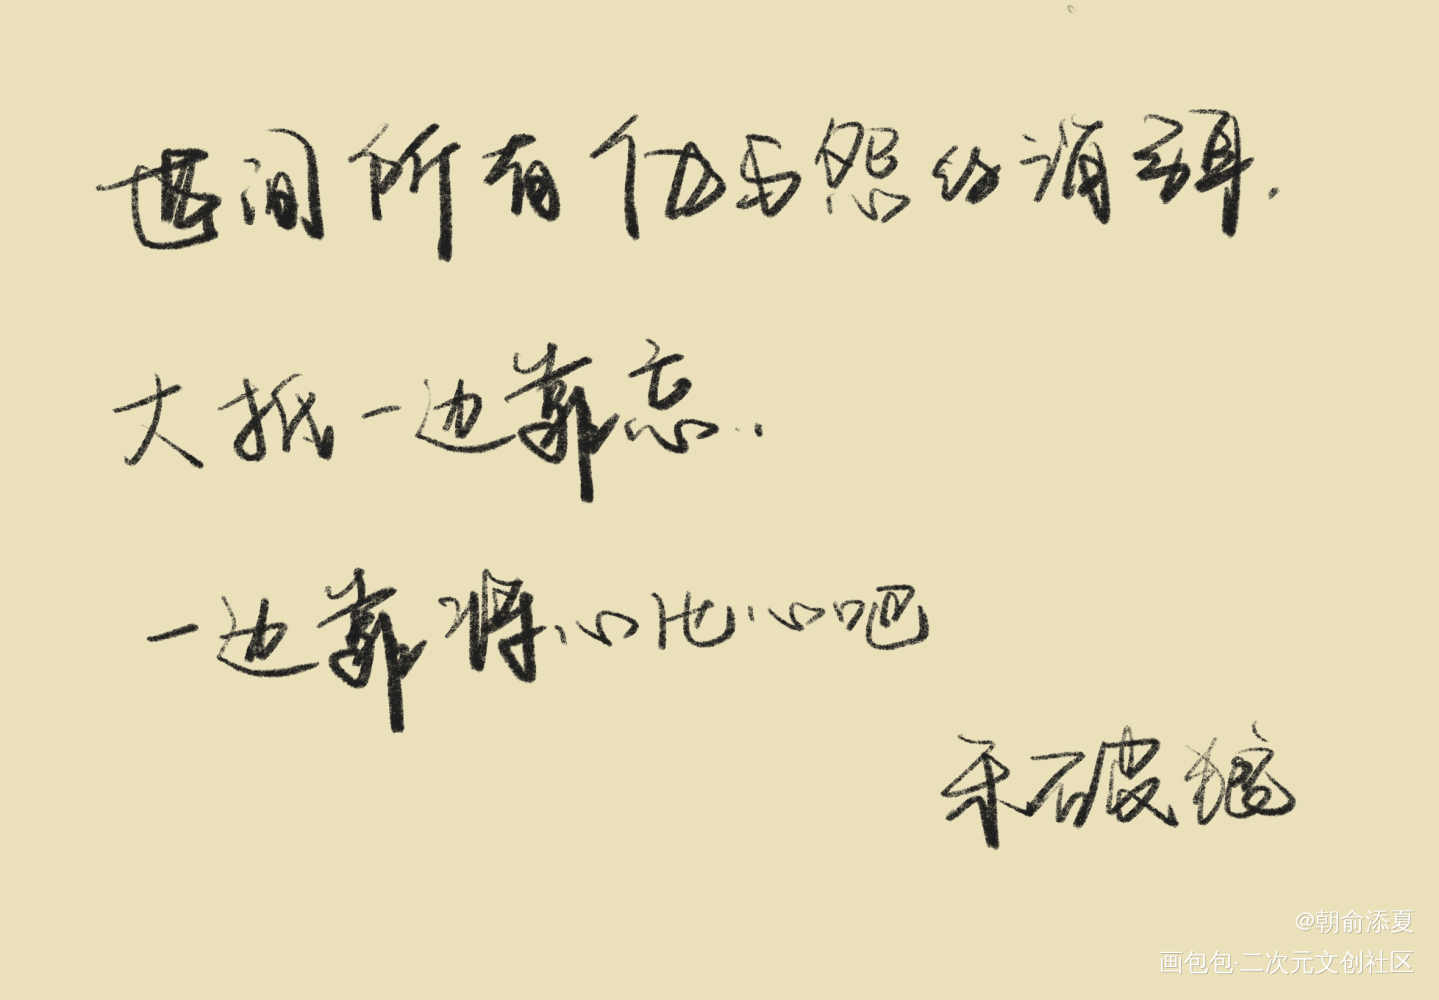 世间所有仇与怨的消弭.
大抵一边靠忘..
一边靠将心比心吧
禾破狼
@朝俞添夏
画包包·二次元文创社区